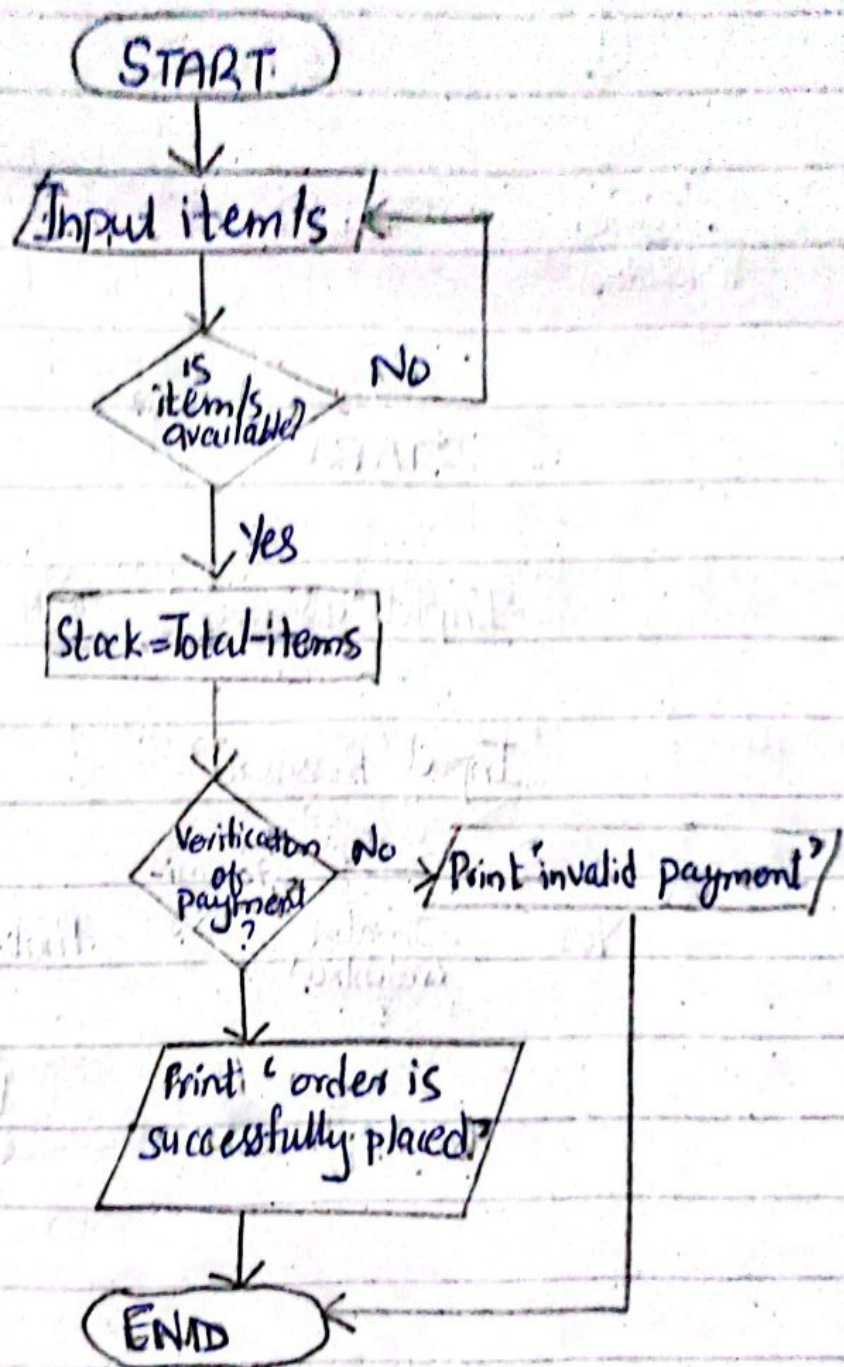 START
Input item/s
is
item/s
available?
No
Yes
Stock=Total-items
Verification
of
payment
?
No
Print 'invalid payment'
Print: ' order is
successfully placed.'
END